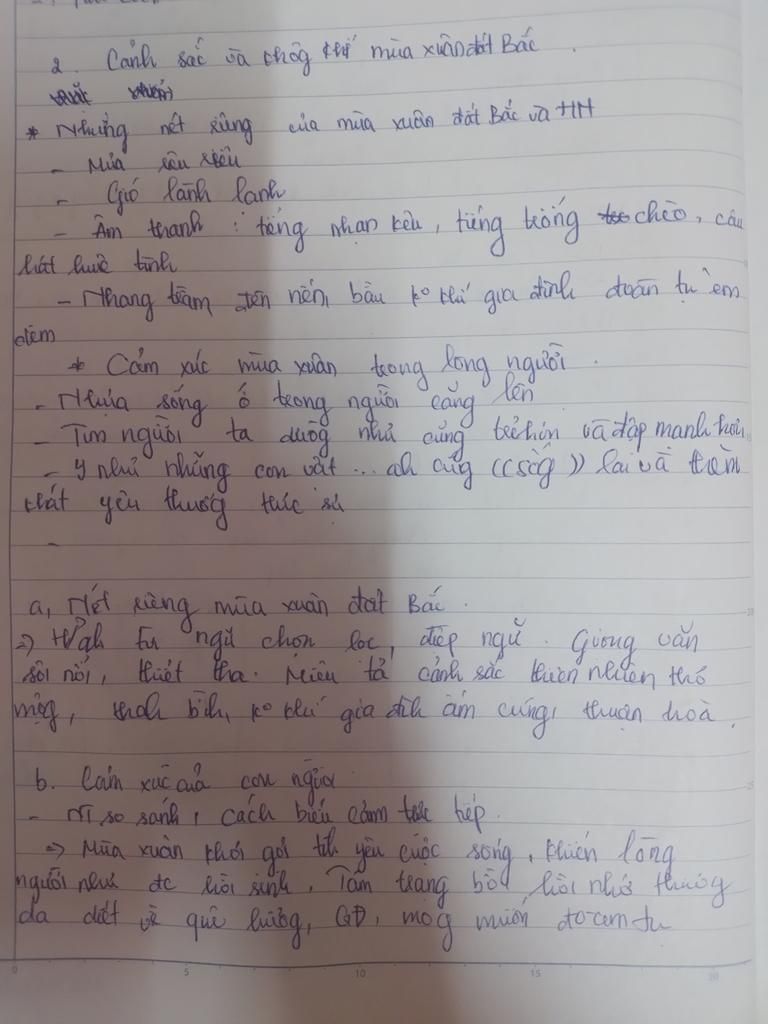 2. Cảnh sắc và không khí mùa xuân đất Bắc.
* Những nét riêng của mùa xuân đất Bắc và HN
- Mưa riêu riêu
- Gió lành lạnh
- Âm thanh : tiếng nhạn kêu, tiếng trống chèo, câu
hát huê tình
- Nhang trầm đèn nến, bầu ko khí gia đình đoàn tụ êm
đềm
* Cảm xúc mùa xuân trong lòng người.
- Nhựa sống ở trong người căng lên
- Tim người ta dường như cũng trẻ hơn và đập mạnh hơn.
- Y như những con vật ... anh cũng ((sống)) lại và thèm
khát yêu thương thực sự
-
a, Nét riêng mùa xuân đất Bắc.
=> từ ngữ chọn lọc, điệp ngữ. Giọng văn
sôi nổi, thiết tha. Miêu tả cảnh sắc thiên nhiên thơ
mộng, thanh bình, ko khí gia đình ấm cúng, thuận hoà.
b. Cảm xúc của con người
- NT so sánh, cách biểu cảm trực tiếp.
=> Mùa xuân khơi gợi tình yêu cuộc sống, khiến lòng
người như đc hồi sinh. Tâm trạng bồi hồi nhớ thương
da diết về quê hương, GĐ, mong muốn